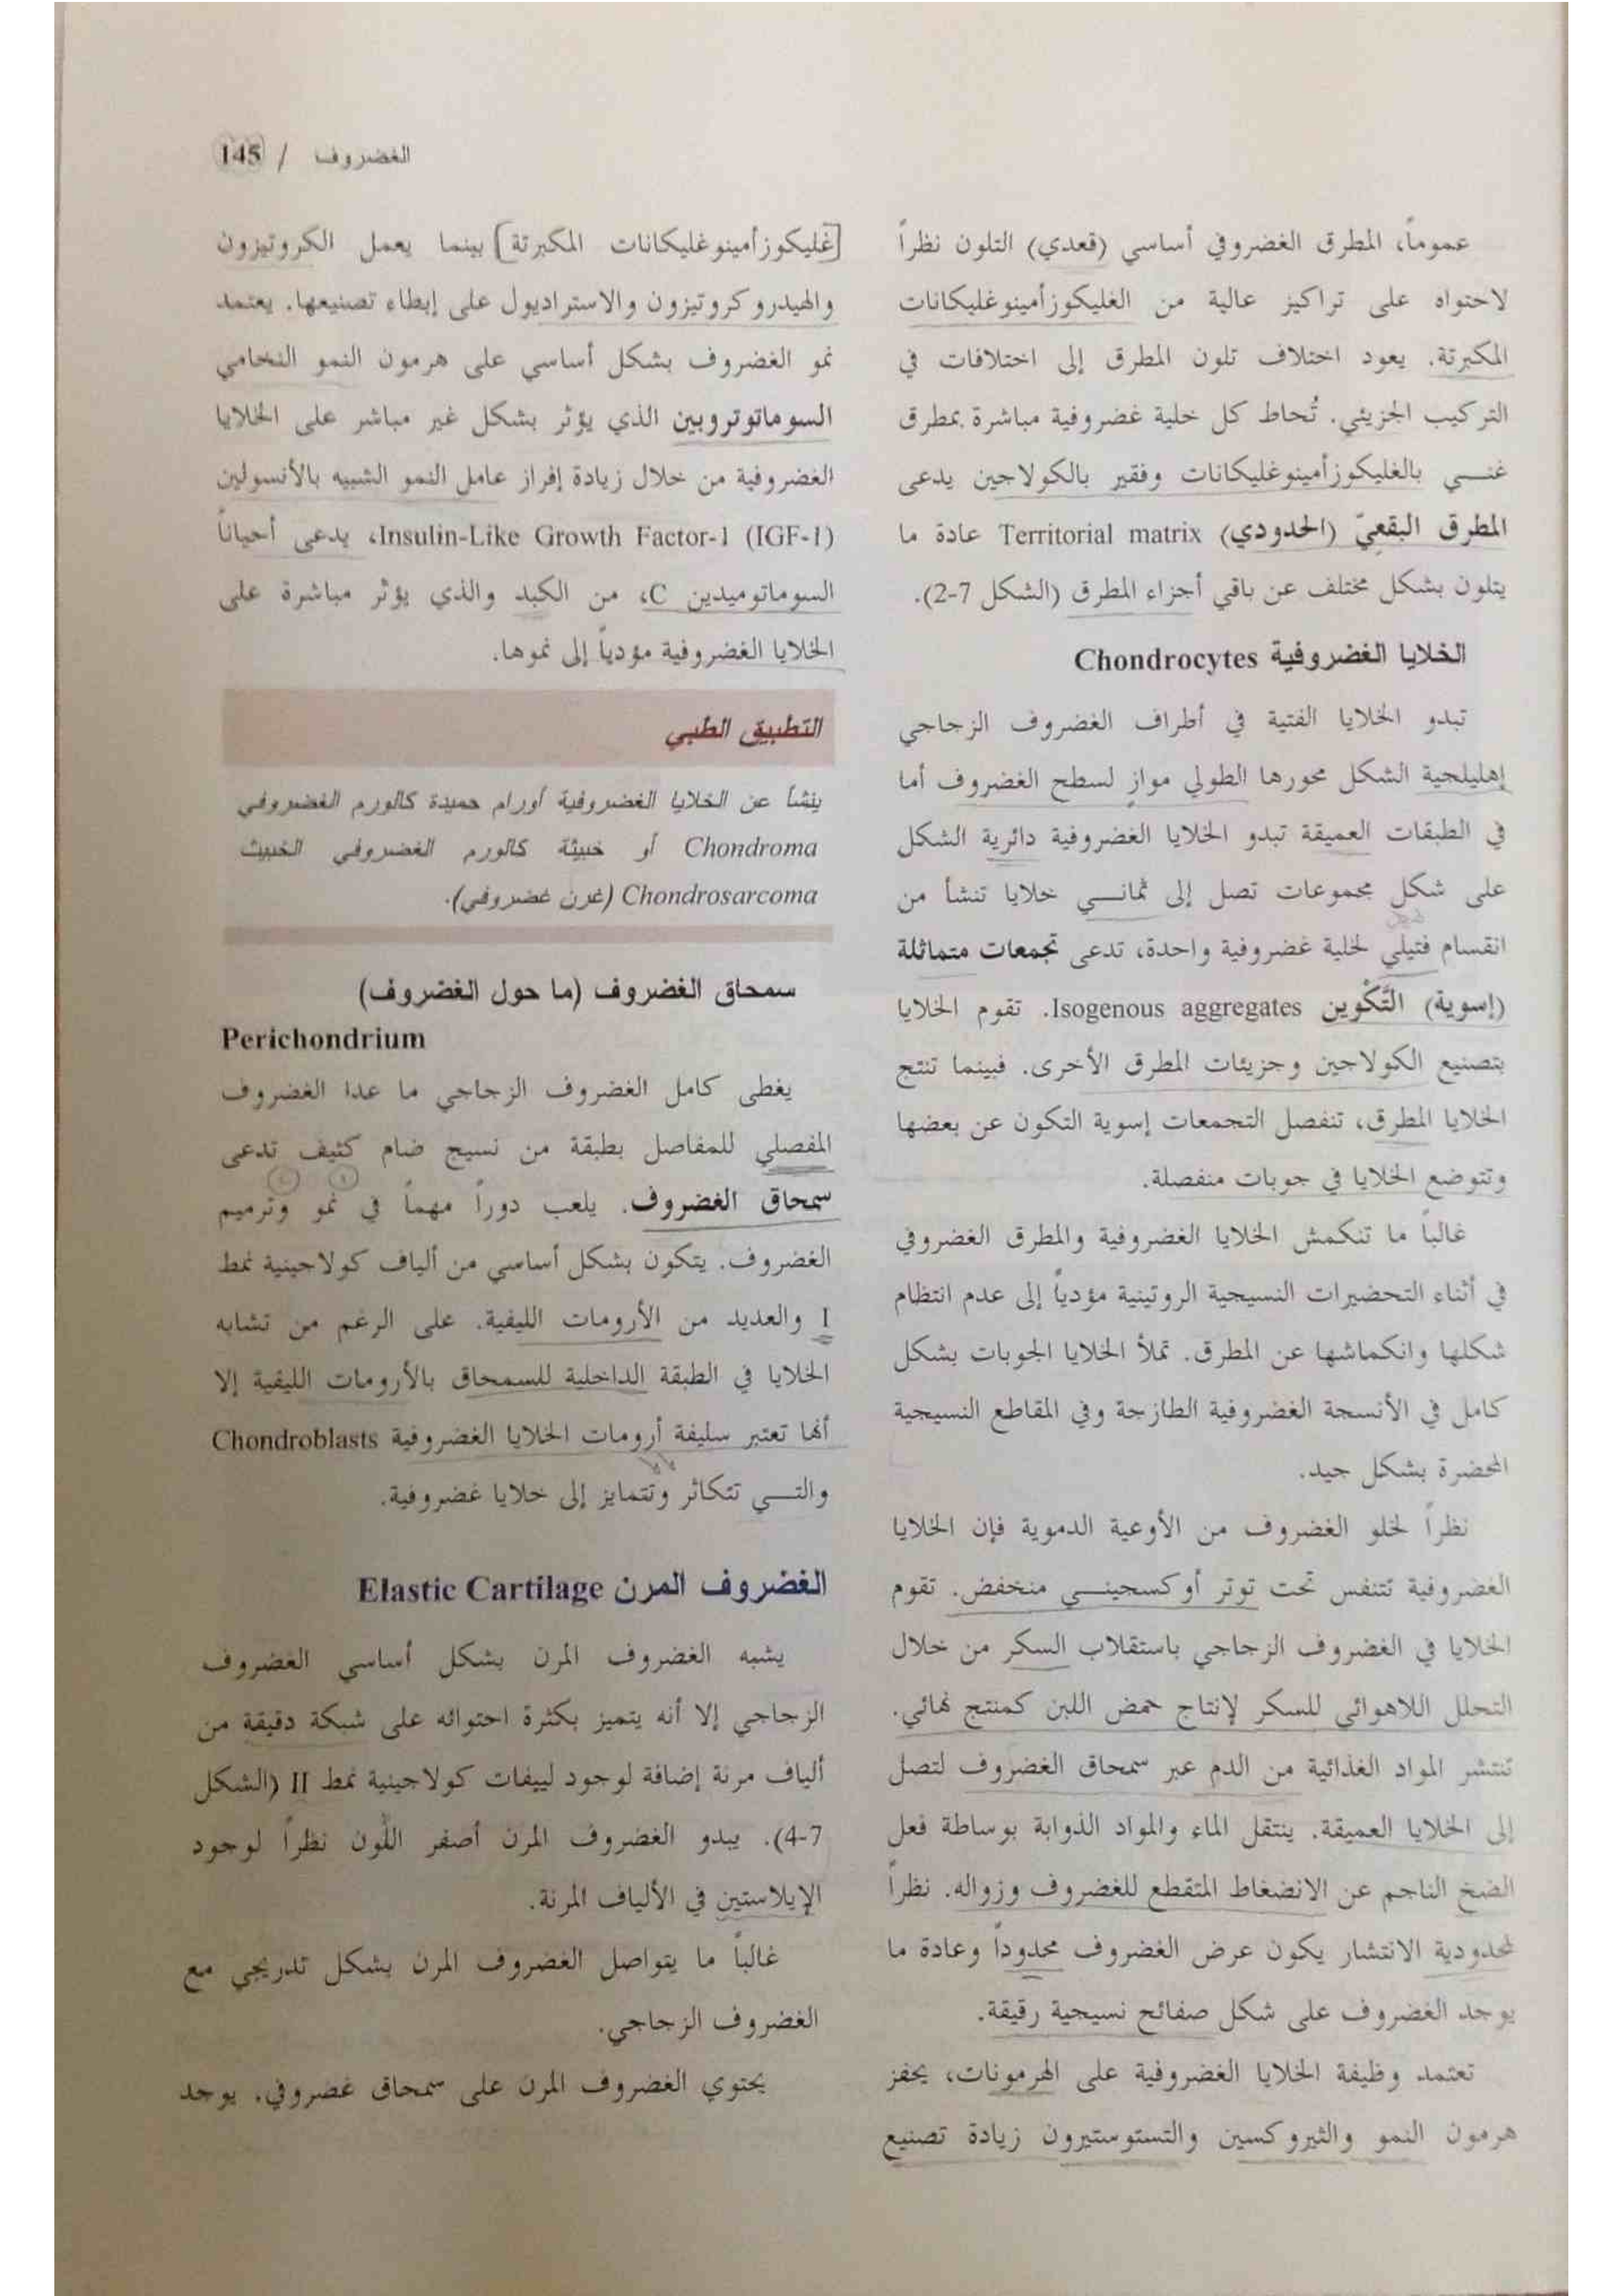 الغضروف / 145
عموماً، المطرق الغضروفي أساسي (قعدي) التلون نظراً
لاحتواه على تراكيز عالية من الغليكوزأمينوغليكانات
المكبرتة. يعود اختلاف تلون المطرق إلى اختلافات في
التركيب الجزيئي. تُحاط كل خلية غضروفية مباشرة بمطرق
غنــي بالغليكوزأمينوغليكانات وفقير بالكولاجين يدعى
المطرق البقعيّ (الحدودي) Territorial matrix عادة ما
يتلون بشكل مختلف عن باقي أجزاء المطرق (الشكل 7-2).
الخلايا الغضروفية Chondrocytes
تبدو الخلايا الفتية في أطراف الغضروف الزجاجي
إهليلجية الشكل محورها الطولي موازٍ لسطح الغضروف أما
في الطبقات العميقة تبدو الخلايا الغضروفية دائرية الشكل
على شكل مجموعات تصل إلى ثمانــي خلايا تنشأ من
انقسام فتيلي لخلية غضروفية واحدة، تدعى تجمعات متماثلة
(إسوية) التَّكْوين Isogenous aggregates. تقوم الخلايا
بتصنيع الكولاجين وجزيئات المطرق الأخرى. فبينما تنتج
الخلايا المطرق، تنفصل التجمعات إسوية التكون عن بعضها
وتتوضع الخلايا في جوبات منفصلة.
غالباً ما تنكمش الخلايا الغضروفية والمطرق الغضروفي
في أثناء التحضيرات النسيجية الروتينية مؤدياً إلى عدم انتظام
شكلها وانكماشها عن المطرق. تملأ الخلايا الجوبات بشكل
كامل في الأنسجة الغضروفية الطازجة وفي المقاطع النسيجية
المحضرة بشكل جيد.
نظراً لخلو الغضروف من الأوعية الدموية فإن الخلايا
الغضروفية تتنفس تحت توتر أوكسجينــي منخفض. تقوم
الخلايا في الغضروف الزجاجي باستقلاب السكر من خلال
التحلل اللاهوائي للسكر لإنتاج حمض اللبن كمنتج نهائي.
تنتشر المواد الغذائية من الدم عبر سمحاق الغضروف لتصل
إلى الخلايا العميقة. ينتقل الماء والمواد الذوابة بوساطة فعل
الضخ الناجم عن الانضغاط المتقطع للغضروف وزواله. نظراً
لمحدودية الانتشار يكون عرض الغضروف محدوداً وعادة ما
يوجد الغضروف على شكل صفائح نسيجية رقيقة.
تعتمد وظيفة الخلايا الغضروفية على الهرمونات، يحفز
هرمون النمو والثيروكسين والتستوستيرون زيادة تصنيع
[غليكوزأمينوغليكانات المكبرتة] بينما يعمل الكروتيزون
والهيدروكروتيزون والاستراديول على إبطاء تصنيعها. يعتمد
نمو الغضروف بشكل أساسي على هرمون النمو النخامي
السوماتوتروبين الذي يؤثر بشكل غير مباشر على الخلايا
الغضروفية من خلال زيادة إفراز عامل النمو الشبيه بالأنسولين
Insulin-Like Growth Factor-1 (IGF-1)، يدعى أحياناً
السوماتوميدين C، من الكبد والذي يؤثر مباشرة على
الخلايا الغضروفية مؤدياً إلى نموها.
التطبيق الطبي
ينشأ عن الخلايا الغضروفية أورام حميدة كالورم الغضروفي
Chondroma أو خبيثة كالورم الغضروفي الخبيث
Chondrosarcoma (غرن غضروفي).
سمحاق الغضروف (ما حول الغضروف)
Perichondrium
يغطى كامل الغضروف الزجاجي ما عدا الغضروف
المفصلي للمفاصل بطبقة من نسيج ضام كثيف تدعى
سمحاق الغضروف. يلعب دوراً مهماً في نمو وترميم
الغضروف. يتكون بشكل أساسي من ألياف كولاجينية نمط
I والعديد من الأرومات الليفية. على الرغم من تشابه
الخلايا في الطبقة الداخلية للسمحاق بالأرومات الليفية إلا
أنها تعتبر سليفة أرومات الخلايا الغضروفية Chondroblasts
والتــي تتكاثر وتتمايز إلى خلايا غضروفية.
الغضروف المرن Elastic Cartilage
يشبه الغضروف المرن بشكل أساسي الغضروف
الزجاجي إلا أنه يتميز بكثرة احتوائه على شبكة دقيقة من
ألياف مرنة إضافة لوجود لييفات كولاجينية نمط II (الشكل
7-4). يبدو الغضروف المرن أصفر اللّون نظراً لوجود
الإيلاستين في الألياف المرنة.
غالباً ما يتواصل الغضروف المرن بشكل تدريجي مع
الغضروف الزجاجي.
يحتوي الغضروف المرن على سمحاق غضروفي. يوجد